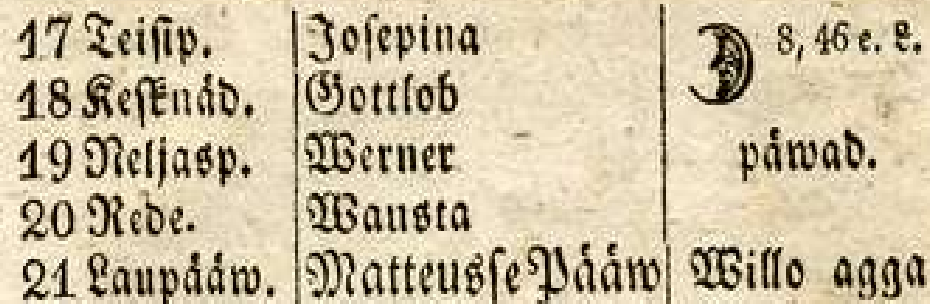 17 Teisip. Josepina 8, 46 e. L.
18 Keſknäd. Gottlob
19 Neljasp. Werner päwad.
20 Rede. Wansta
21 Laupääw. Matteusſe Pääw Willo agga